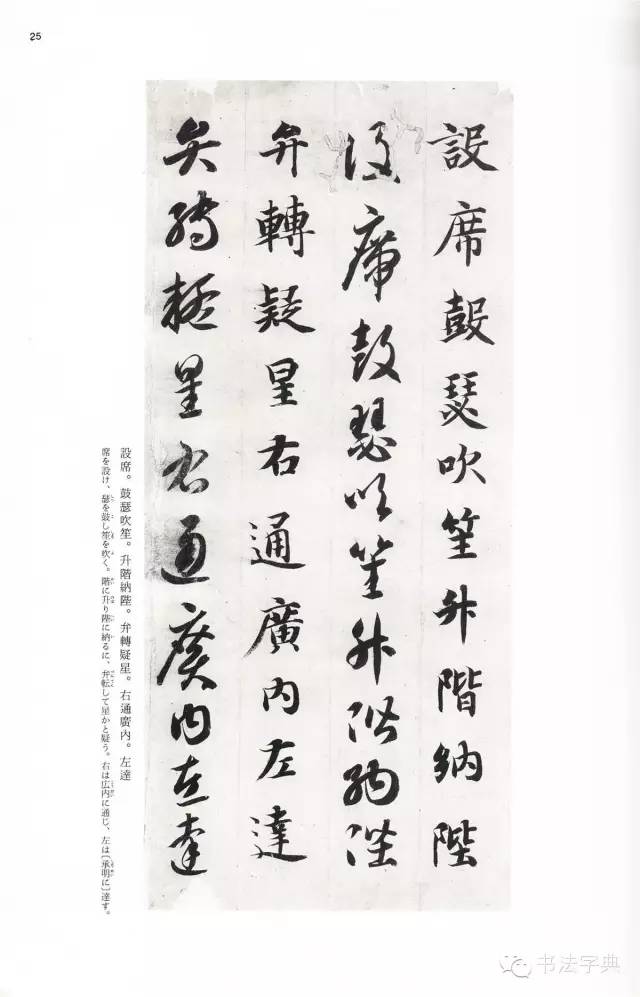 25
設席鼓瑟吹笙升階納陛
設席鼓瑟吹笙升階納陛
弁轉疑星右通廣内左達
弁轉疑星右通廣内左達
設席。鼓瑟吹笙。升階納陛。弁轉疑星。右通廣內。左達
席を設け、瑟を鼓し笙を吹く。階に升り陛に納るに、弁転して星かと疑う。右は広内に通じ、左は〔承明に〕達す。
书法字典